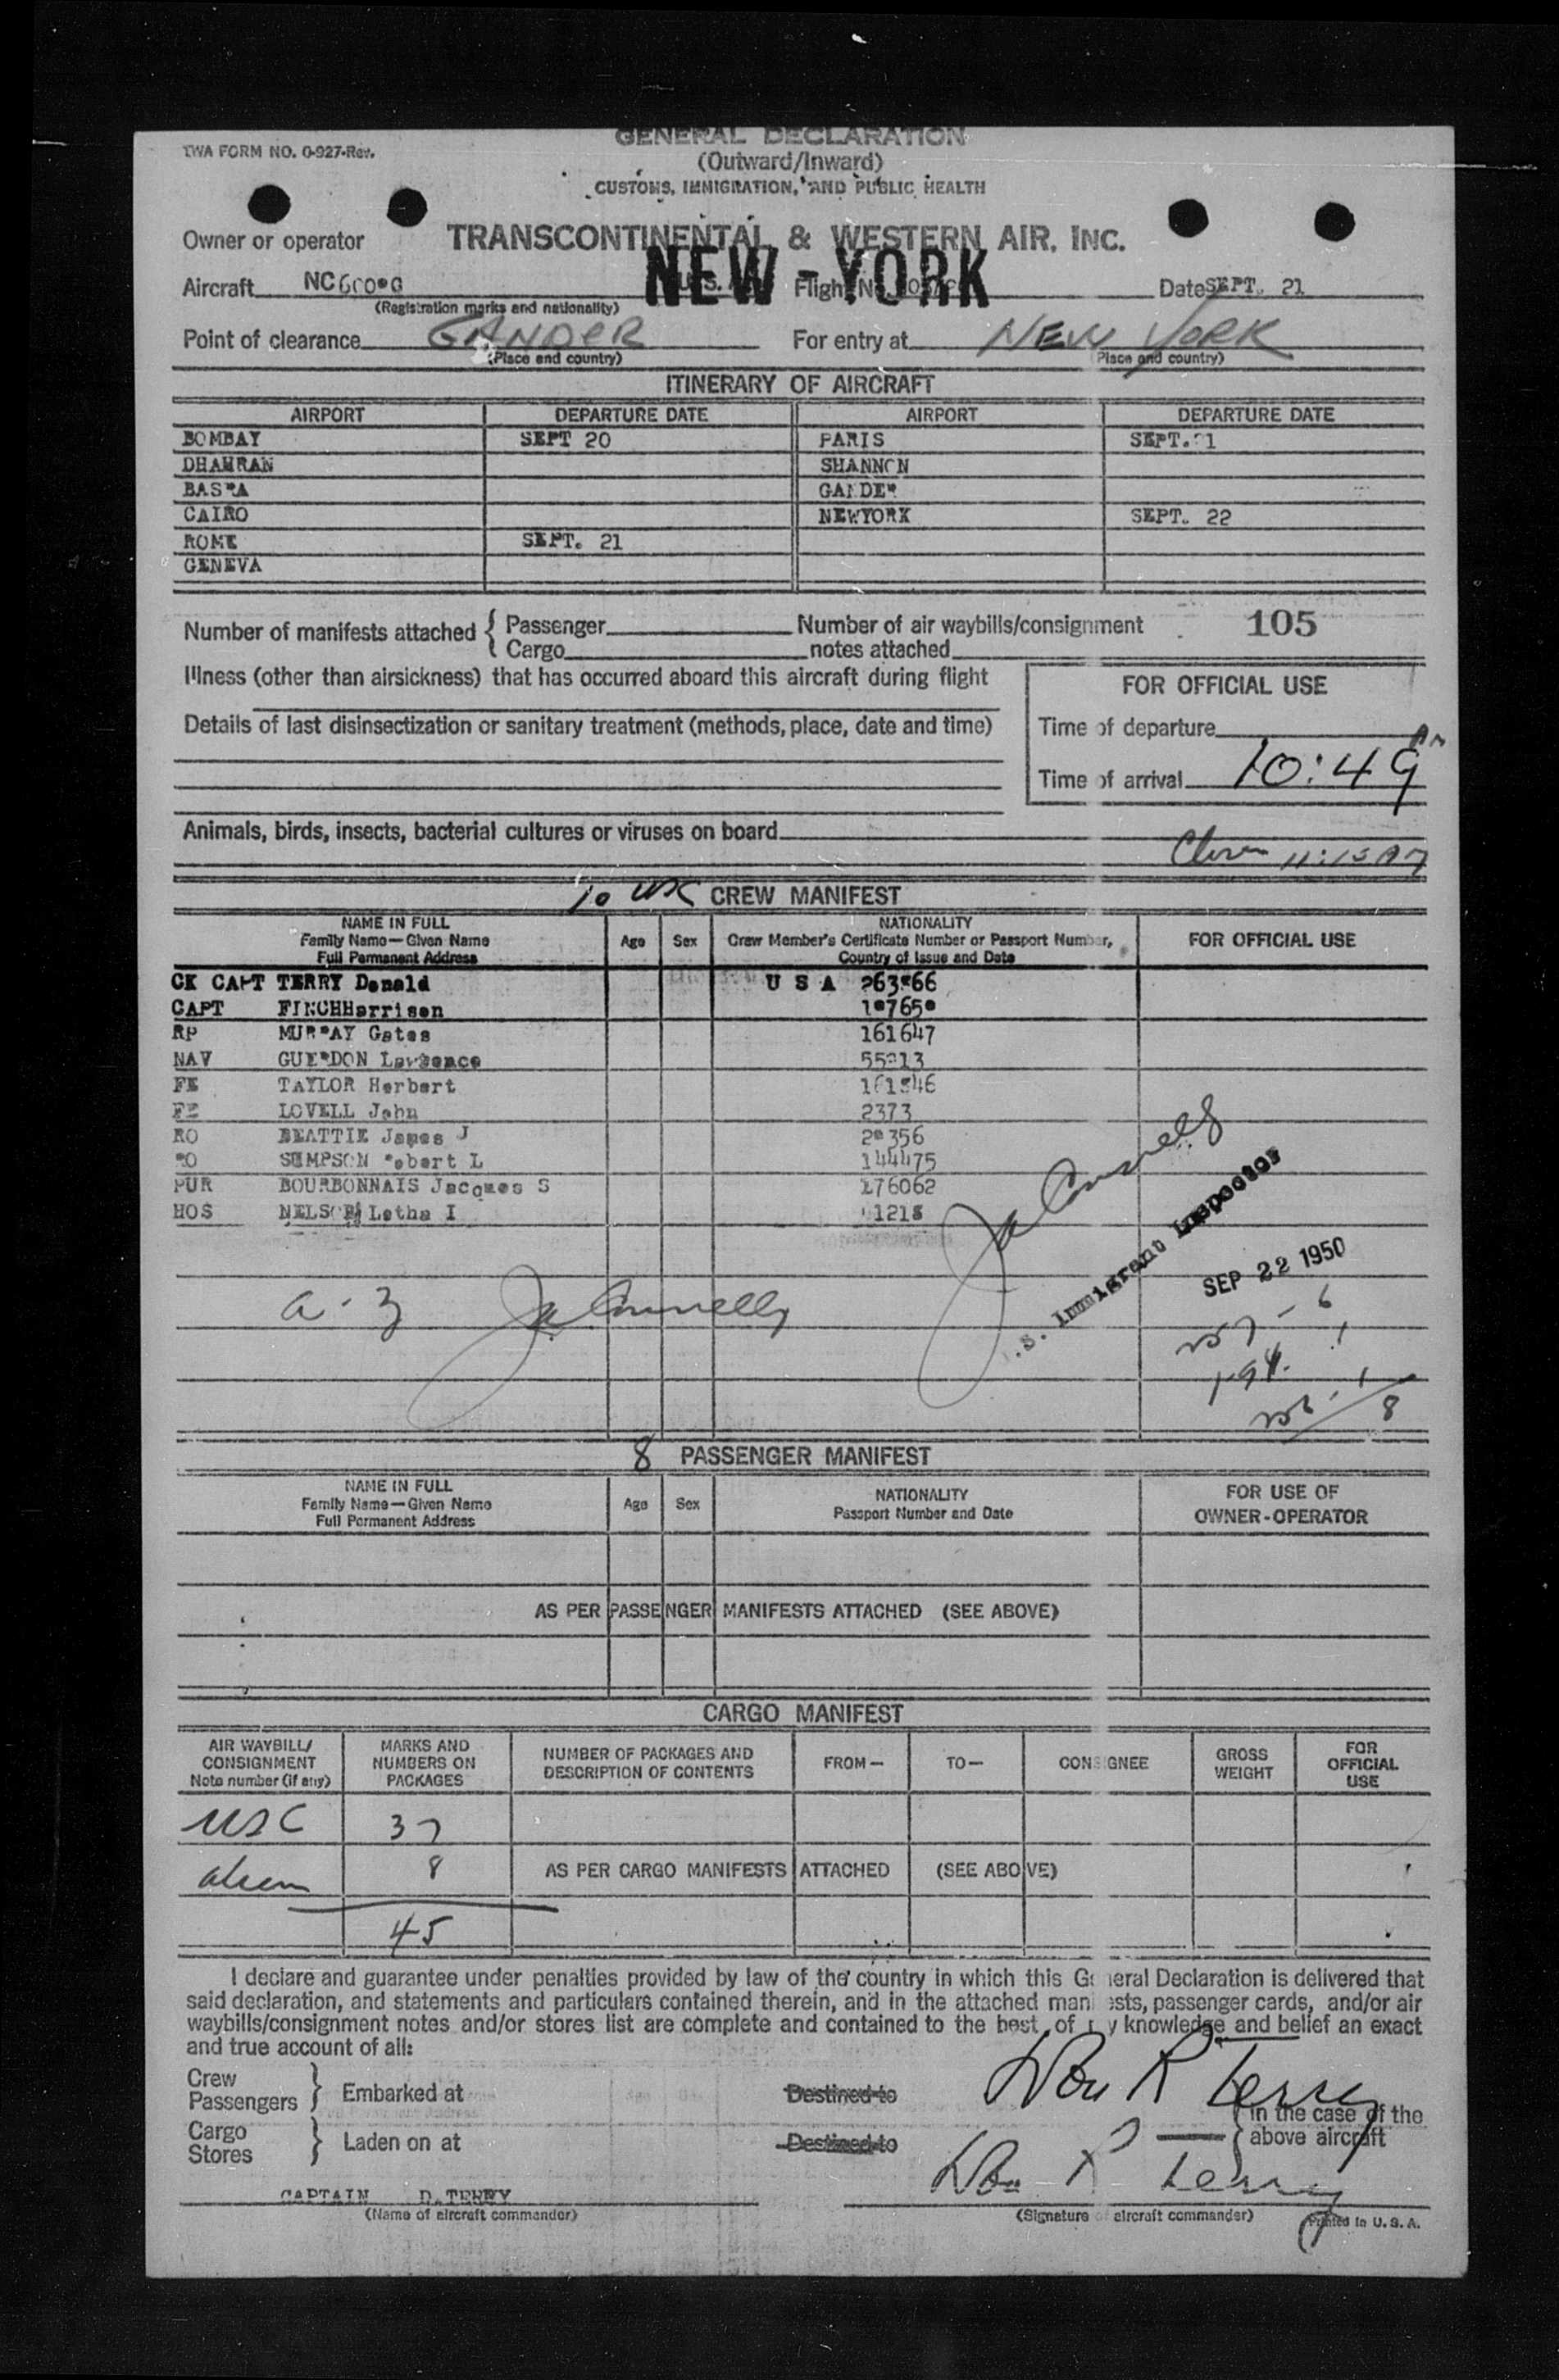 GENERAL DECLARATION
TWA FORM NO. 0-927-Rev.
(Outward/Inward)
CUSTOMS, IMMIGRATION, AND PUBLIC HEALTH
Owner or operator TRANSCONTINENTAL & WESTERN AIR, INC.
NEW-YORK
Aircraft Flight No. Date SEPT. 21
(Registration marks and nationality)
Point of clearance GANDER For entry at NEW YORK
(Place and country) (Place and country)
ITINERARY OF AIRCRAFT
AIRPORT DEPARTURE DATE AIRPORT DEPARTURE DATE
BOMBAY SEPT 20 PARIS SEPT.
DHAHRAN SHANNON
BASRA GANDER
CAIRO NEWYORK SEPT. 22
ROME SEPT. 21
GENEVA
Number of manifests attached { Passenger Number of air waybills/consignment 105
Cargo notes attached
Illness (other than airsickness) that has occurred aboard this aircraft during flight
FOR OFFICIAL USE
Details of last disinsectization or sanitary treatment (methods, place, date and time)
Time of departure
Time of arrival 10:49 AM
Animals, birds, insects, bacterial cultures or viruses on board
11:15 AM
10 USC CREW MANIFEST
NAME IN FULL
Family Name—Given Name
Full Permanent Address
Age Sex
NATIONALITY
Crew Member's Certificate Number or Passport Number,
Country of Issue and Date
FOR OFFICIAL USE
CK CAPT TERRY Donald U S A
CAPT FINCHHarrison
RP MURRAY Gates 161647
NAV GUERDON Lawrence
FE TAYLOR Herbert
FE LOVELL John 2373
RO BEATTIE James J
RO SIMPSON Robert L 144475
PUR BOURBONNAIS Jacques S 176062
HOS NELSON Letha I
J Connelly
U.S. Immigrant Inspector
SEP 22 1950
a-3 J Connelly
257 - 6
194. 1
256 - 1
8
8 PASSENGER MANIFEST
NAME IN FULL
Family Name—Given Name
Full Permanent Address
Age Sex
NATIONALITY
Passport Number and Date
FOR USE OF
OWNER-OPERATOR
AS PER PASSENGER MANIFESTS ATTACHED (SEE ABOVE)
CARGO MANIFEST
AIR WAYBILL/
CONSIGNMENT
Note number (if any)
MARKS AND
NUMBERS ON
PACKAGES
NUMBER OF PACKAGES AND
DESCRIPTION OF CONTENTS
FROM— TO— CONSIGNEE
GROSS
WEIGHT
FOR
OFFICIAL
USE
USC 37
alien 8 AS PER CARGO MANIFESTS ATTACHED (SEE ABOVE)
45
I declare and guarantee under penalties provided by law of the country in which this General Declaration is delivered that
said declaration, and statements and particulars contained therein, and in the attached manifests, passenger cards, and/or air
waybills/consignment notes and/or stores list are complete and contained to the best of my knowledge and belief an exact
and true account of all:
Crew
Passengers } Embarked at Destined to Don R Terry
Cargo
Stores } Laden on at Destined to
} in the case of the
above aircraft
CAPTAIN D.TERRY Don R Terry
(Name of aircraft commander) (Signature of aircraft commander) Printed in U.S.A.